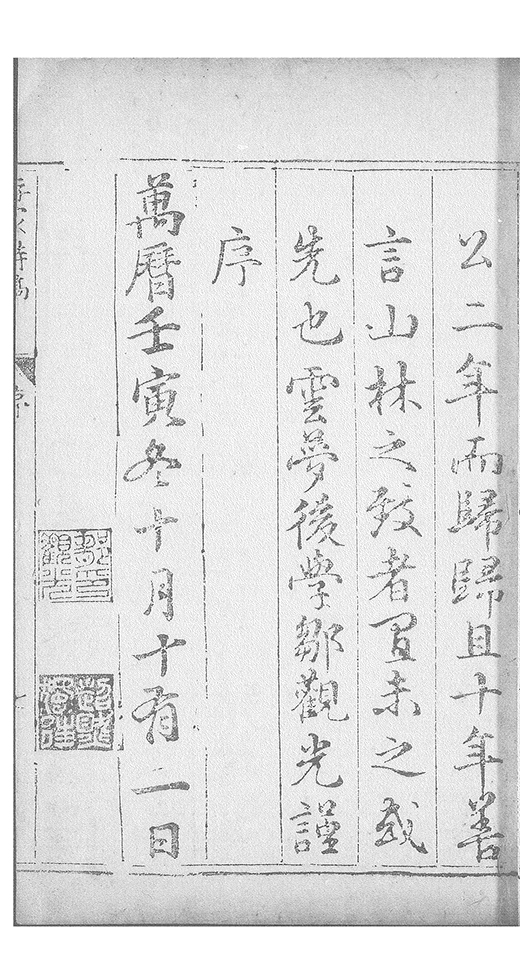 公二年而歸歸且十年善
言山林之致者罝未之或
先也雲夢後學鄒觀光謹
序
萬曆壬寅冬十月十有二日